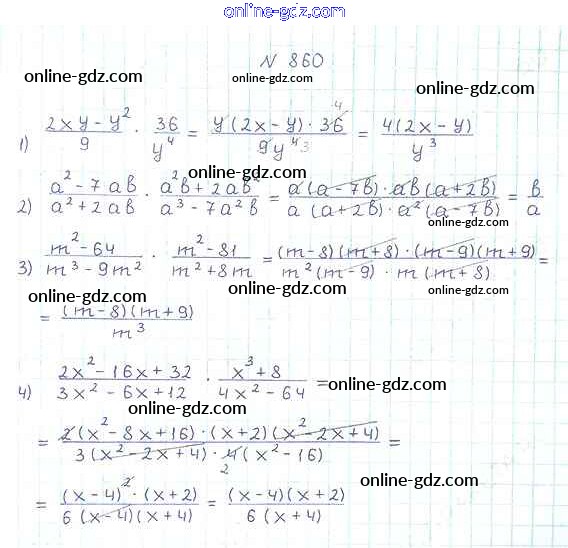 online-gdz.com
N 860
online-gdz.com online-gdz.com online-gdz.com
1) (2xy - y²)/9 · 36/y⁴ = (y(2x - y) · 36 4)/(9y⁴ 3) = (4(2x - y))/y³
online-gdz.com
2) (a² - 7ab)/(a² + 2ab) · (a²b + 2ab²)/(a³ - 7a²b) = (a(a - 7b) · ab(a + 2b))/(a(a + 2b) · a²(a - 7b)) = b/a
online-gdz.com online-gdz.com
3) (m² - 64)/(m³ - 9m²) · (m² - 81)/(m² + 8m) = ((m - 8)(m + 8) · (m - 9)(m + 9))/(m²(m - 9) · m(m + 8)) =
online-gdz.com online-gdz.com online-gdz.com
= ((m - 8)(m + 9))/m³
online-gdz.com
4) (2x² - 16x + 32)/(3x² - 6x + 12) · (x³ + 8)/(4x² - 64) = online-gdz.com
online-gdz.com
= (2(x² - 8x + 16) · (x + 2)(x² - 2x + 4))/(3(x² - 2x + 4) · 4 2(x² - 16)) =
online-gdz.com online-gdz.com
= ((x - 4)² · (x + 2))/(6(x - 4)(x + 4)) = ((x - 4)(x + 2))/(6(x + 4))
online-gdz.com